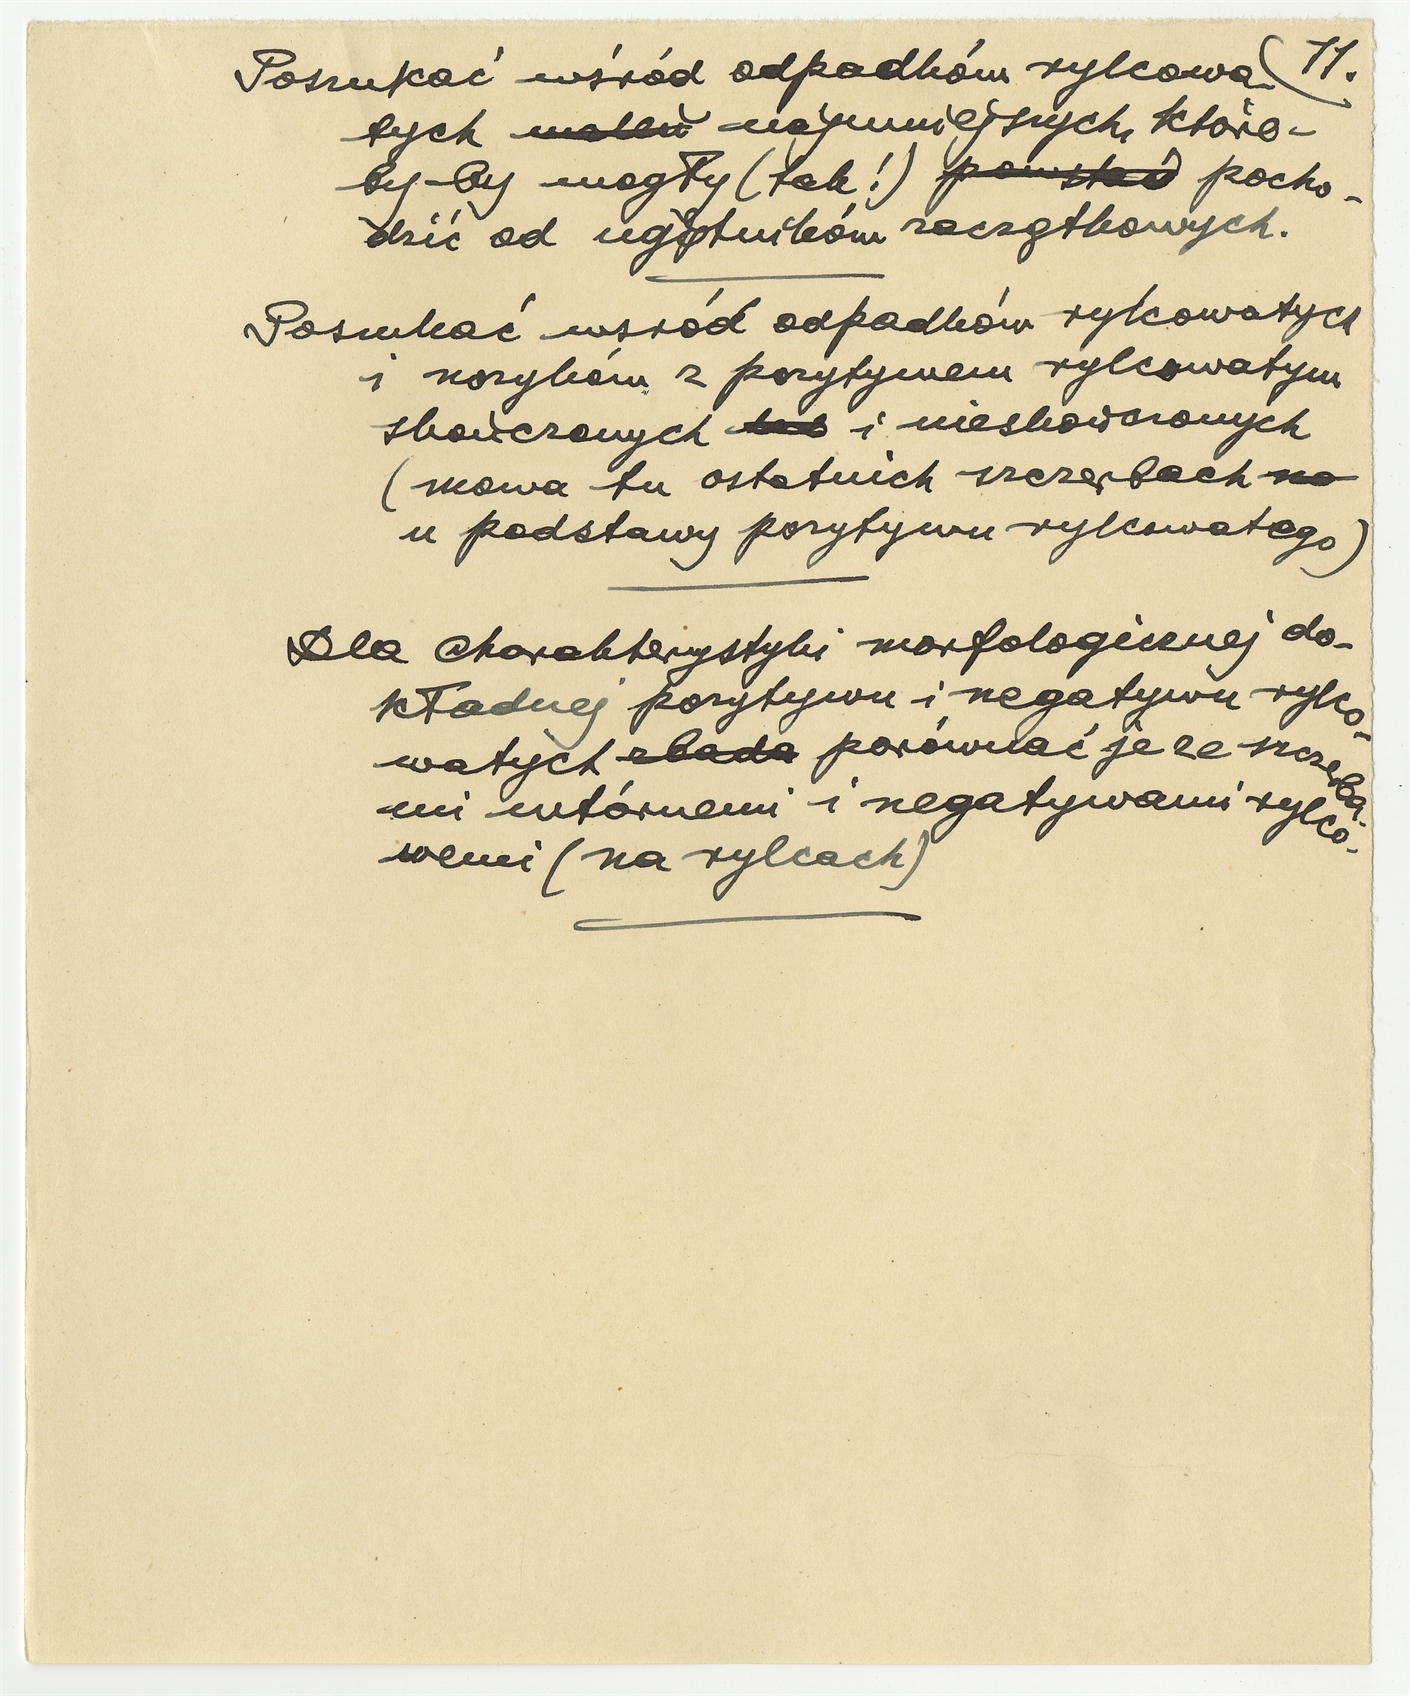 Poszukać wśród odpadków rylcowa- 11.
tych najmniejszych, które-
by-by mogły (tak!) powstać pocho-
dzić od ugiętników zaczątkowych.
Poszukać wsród odpadków rylcowatych
i nozyków z pozytywem rylcowatym
skończonych lub i nieskończonych
(mowa tu ostatnich szczerbach na
u podstawy pozytywu rylcowatego)
Dla charakterystyki morfologicznej do-
kładnej pozytywu i negatywu rylco-
watych zbada porównać je ze szczerba-
mi wtórnemi i negatywami rylco-
wemi (na rylcach)